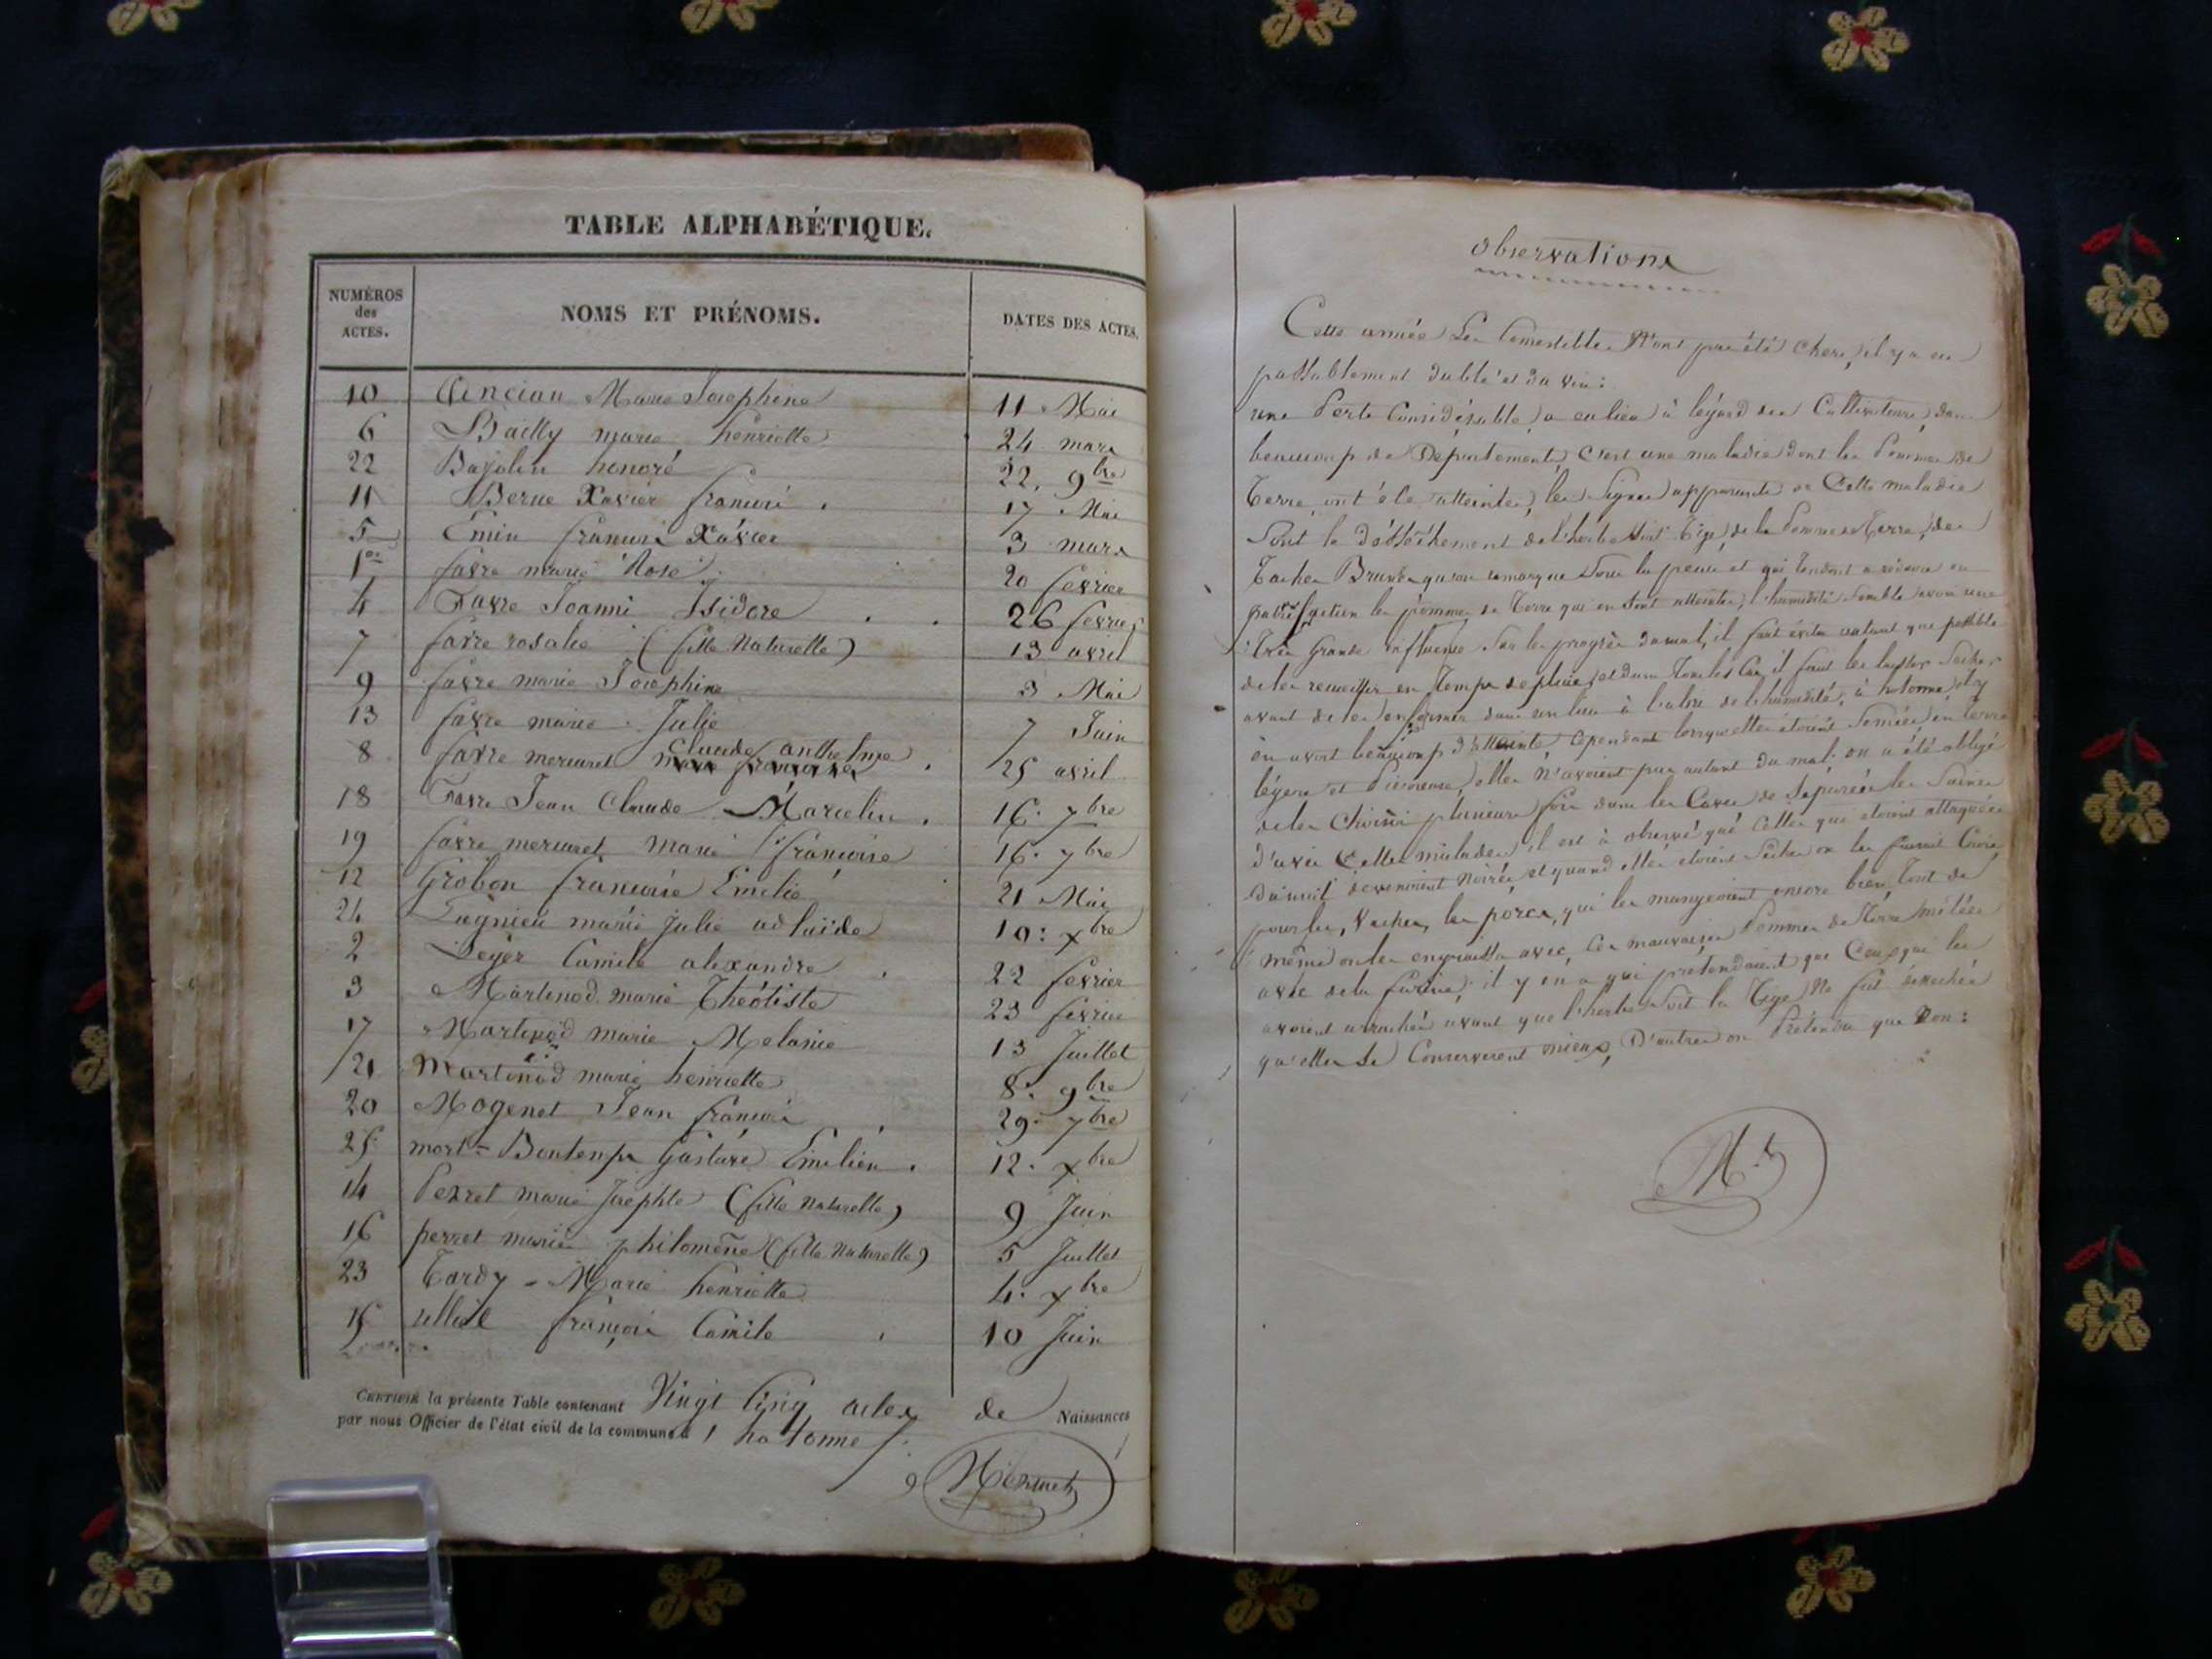 TABLE ALPHABÉTIQUE.
NUMÉROS
des
ACTES.
NOMS ET PRÉNOMS.
DATES DES ACTES.
10 Ancian Marie Josephine 11 Mai
6 Bailly marie henriette 24 mars
22 Bajolin honoré 22. 9bre
11 Berne Xavier francois 17 Mai
5 Emin francois Xavier 3 mars
1er favre marie Rose 20 fevrier
4 Favre Joanni Isidore 26 fevrier
7 favre rosalie (fille Naturelle) 13 avril
9 favre marie Josephine 3 Mai
13 favre marie Julie 7 Juin
8 favre mercuret claude anthelme 25 avril
18 Favre Jean Claude Marcelin 16. 7bre
19 favre mercuret marie francoise 16. 7bre
12 Grobon francoise Emelie 21 Mai
24 Lagnieu marie Julie adlaide 10: xbre
2 Leger Camile alexandre 22 fevrier
3 Martinod marie Théotiste 23 fevrier
17 Martinod marie Melanie 13 Juillet
21 Martinod marie henriette 8. 9bre
20 Mogenet Jean francois 29. 7bre
25 mort= Bontemps Gustave Emilien 12. xbre
14 Perret marie Josephte (fille Naturelle) 9 Juin
16 perret marie philomène (fille Naturelle) 5 Juillet
23 Tardy - Marie henriette 4. xbre
15 ulliet françois Camile 10 Juin
CERTIFIÉ la présente Table contenant Vingt Cinq actes de Naissances
par nous Officier de l'état civil de la commune d' hotonne
observations
Cette année Les Comestibles N'ont pas été chers, il y a eu
passablement du blé et du vin:
une Perte Considérable a eu lieu à légard des Cultivateurs, dans
beaucoup de Départements, c'est une maladie dont les Pommes de
Terre ont été atteintes, les Signes apparents de Cette maladie
Sont le désséchement de l'herbe soit Tige de la Pomme de Terre, des
Taches Brunes qu'on remarque Sous la peau et qui tendent a réduire en
putréfaction les pommes de Terre qui en sont atteintes, l'humidité semble avoir une
Très Grande influence Sur les progrès du mal, il faut éviter autant que possible
de les recueillir en Temps de pluie, et dans Tous les Cas il faut les laisser Secher
avant de les enfermer dans un lieu à l'abri de l'humidité, à hotonne il y
en avoit beaucoup d'atteinte, Cependant lorsquelles étoient Semées en terre
légere et Pierreuse, elles N'avoient pas autant du mal. on a été obligé
de les Choisir plusieurs fois dans les Caves de Séparées les Saines
d'avec Celles malades, il est à observé que Celles qui etoient attaquées
du mal devenoient Noires et quand elles etoient Seches on les faisoit Cuire
pour les Vaches, les porcs, qui les mangeoient encore bien, Tout de
même on les engraissa avec, Ces mauvaises Pommes de Terre mélées
avec de la farine; il y en a qui pretendaient que Ceux qui les
avoient arrachées avant que l'herbe soit la Tige Ne fut desechée
qu'elles se Conserveroient mieux, D'autres on Prétendu que Non: